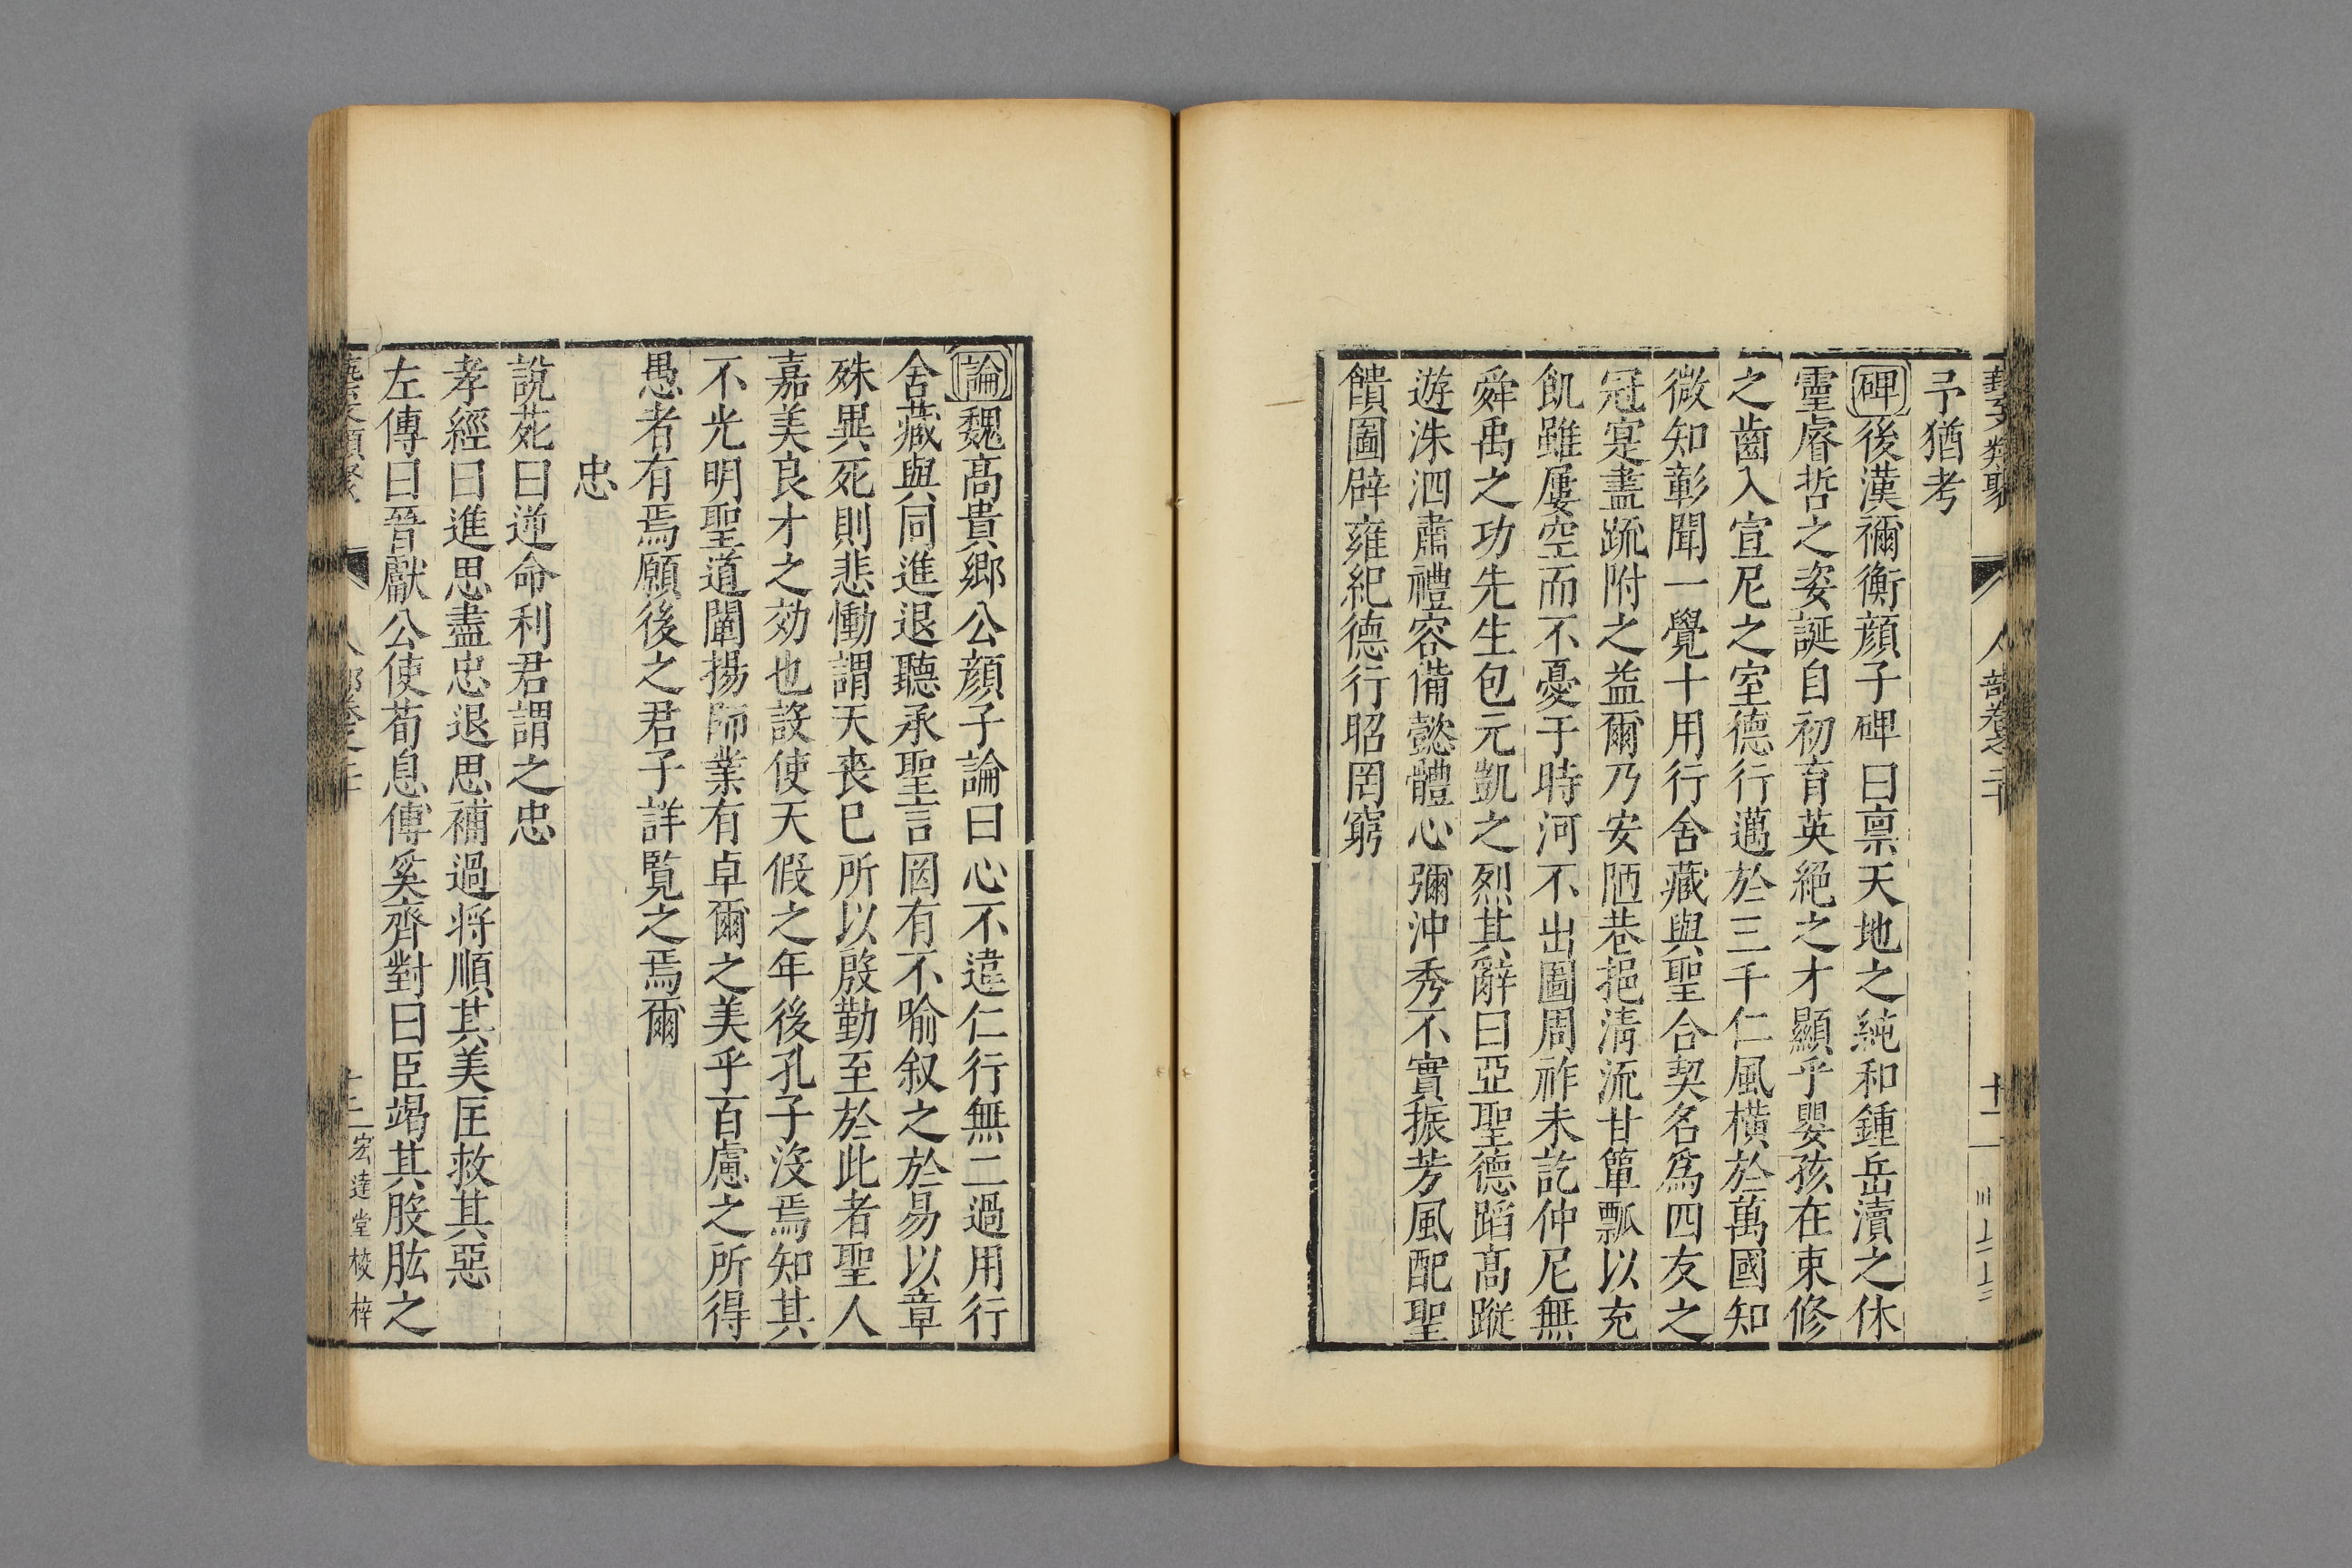 藝文類聚 人部卷之二十 十二
予猶考
碑後漢禰衡顔子碑曰禀天地之純和鍾岳瀆之休
靈睿哲之姿誕自初育英絕之才顯乎嬰孩在束修
之齒入宣尼之室德行邁於三千仁風橫於萬國知
微知彰聞一覺十用行舍藏與聖合契名爲四友之
冠寔盡䟽附之益爾乃安陋巷挹清流甘簞瓢以充
飢雖屢空而不憂于時河不出圖周祚未訖仲尼無
舜禹之功先生包元凱之烈其辭曰亞聖德蹈高蹤
遊洙泗肅禮容備懿體心彌沖秀不實振芳風配聖
饋圖辟雍紀德行昭罔窮
論魏高貴鄉公顔子論曰心不違仁行無二過用行
舍藏與同進退聽承聖言罔有不喻叙之於易以章
殊異死則悲慟謂天喪已所以殷勤至於此者聖人
嘉美良才之効也設使天假之年後孔子没焉知其
不光明聖道闡揚師業有卓爾之美乎百慮之所得
愚者有焉願後之君子詳覽之焉爾
忠
說苑曰逆命利君謂之忠
孝經曰進思盡忠退思補過将順其美匡救其惡
左傳曰晉獻公使荀息傅奚齊對曰臣竭其股肱之
藝文類聚 人部卷之二十 十二 宏達堂校梓